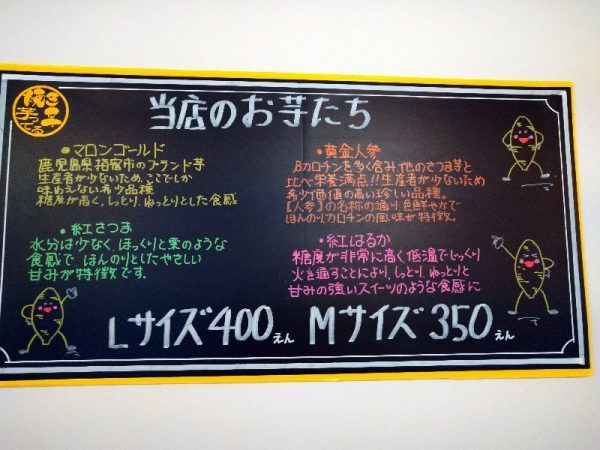 焼き芋
当店のお芋たち
・マロンゴールド
鹿児島県指宿市のブランド芋
生産者が少ないため、ここでしか
味わえない希少品種
糖度が高く、しっとり、ねっとりとした食感
・黄金人参
Bカロチンを多く含み他のさつま芋と
比べ栄養満点!!生産者が少ないため
希少価値の高い珍しい品種。
【人参】の名称の通り色鮮やかで
ほんのりカロチンの風味が特徴。
・紅さつま
水分は少なく、ほっくりと栗のような
食感で、ほんのりとしたやさしい
甘みが特徴です。
・紅はるか
糖度が非常に高く低温でじっくり
火を通すことにより、しっとり、ねっとりと
甘みの強いスイーツのような食感に
Lサイズ400えん Mサイズ350えん